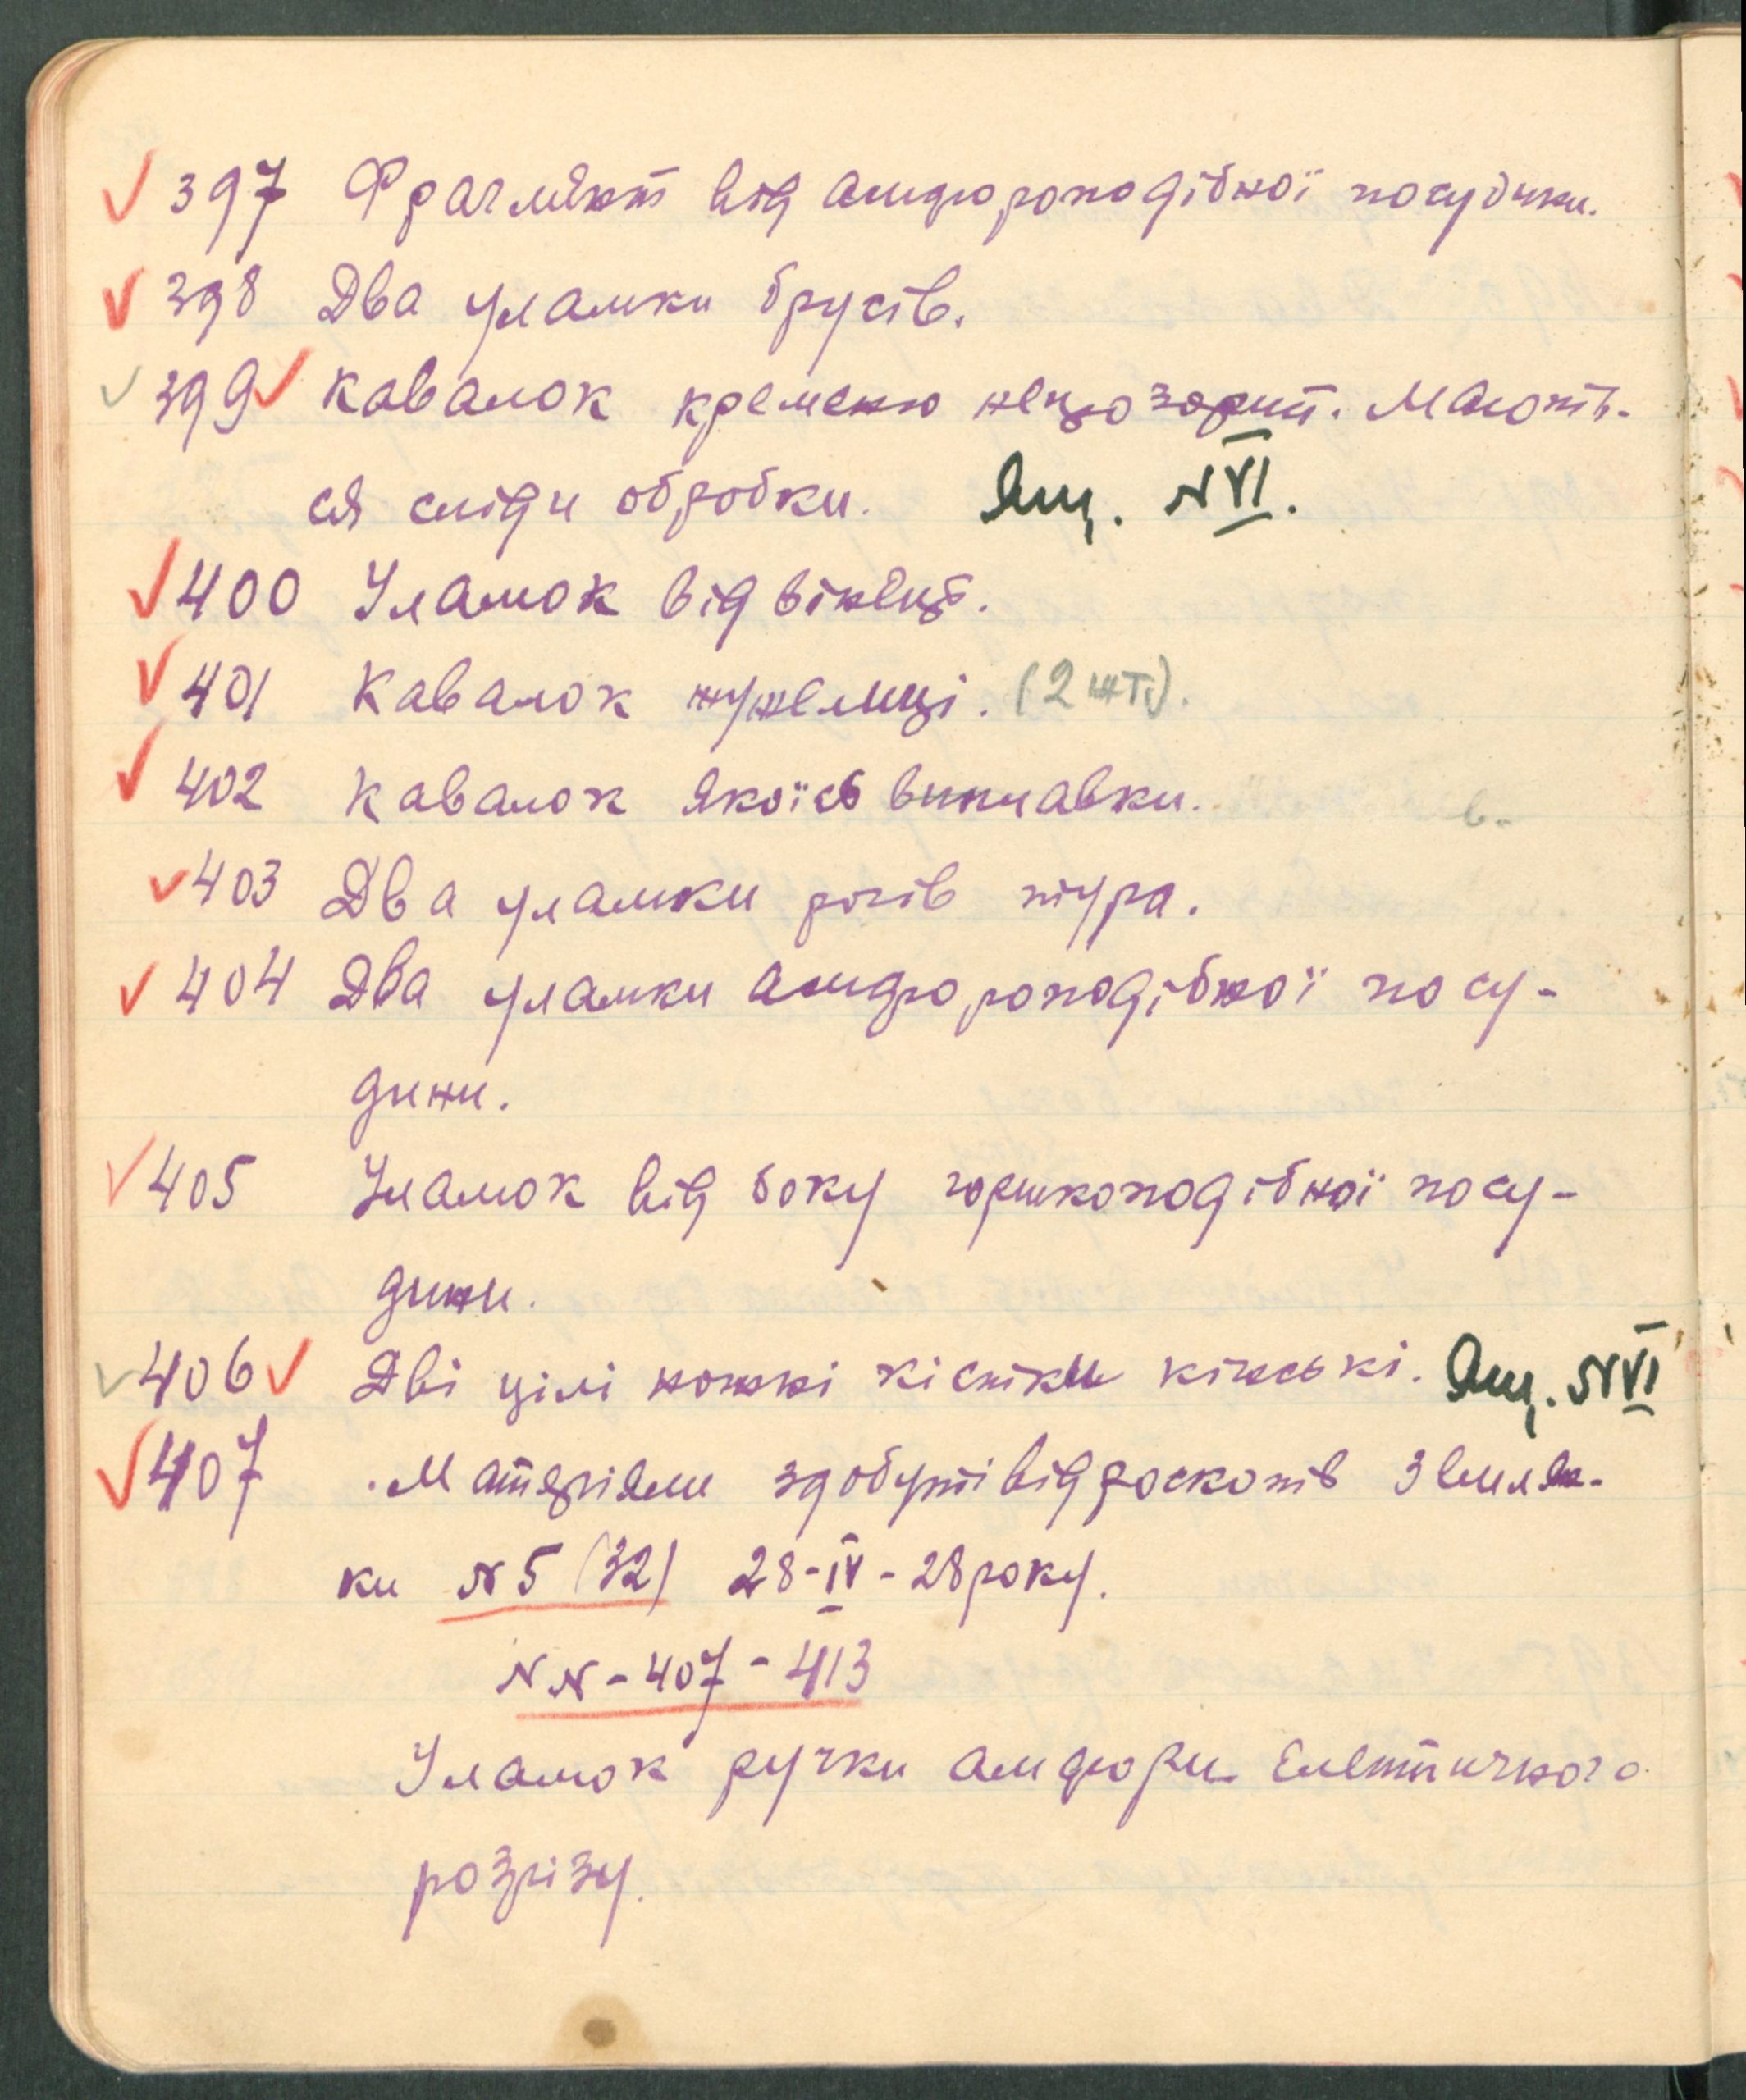 397 Фрагмент від амфороподібної посудини.
398 Два уламки брусів.
399 Кавалок кременю нещо Мають-
ся сліди обробки. Ящ. N VI.
400 Уламок від вінець.
401 Кавалок жужелиці. (2 шт.).
402 Кавалок якоїсь виплавки.
403 Два уламки рогів тура.
404 Два уламки амфороподібної посу-
дини.
405 Уламок від боку горшкоподібної посу-
дини.
406 Дві цілі ножні кістки кінські. Ящ. N VI
407 Матеріяли здобуті від роскопів Землян-
ки N 5 (32) 28-IV-28 року.
NN-407-413
Уламок ручки амфори Елептичного
розрізу.